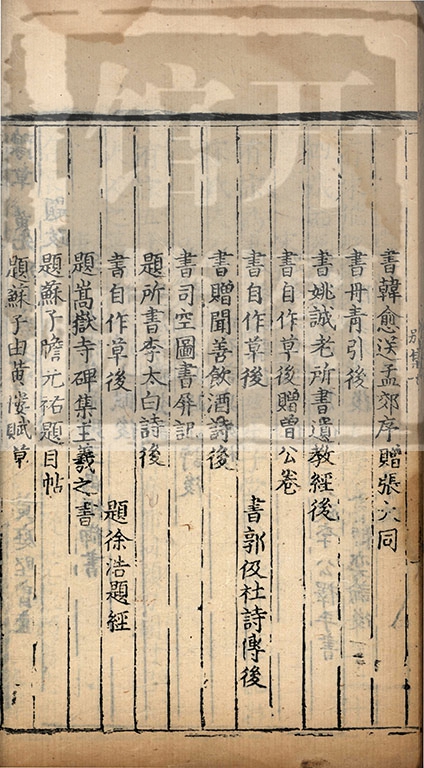 書韓愈送孟郊序贈張大同
書丹青引後
書姚誠老所書遺教經後
書自作草後贈曾公卷
書自作草後 書郭伋杜詩傳後
書贈聞善飲酒詩後
書司空圖書屏記
題所書李太白詩後
書自作草後 題徐浩題經
題嵩嶽寺碑集王羲之書
題蘇子瞻元祐題目帖
題蘇子由黃樓賦草